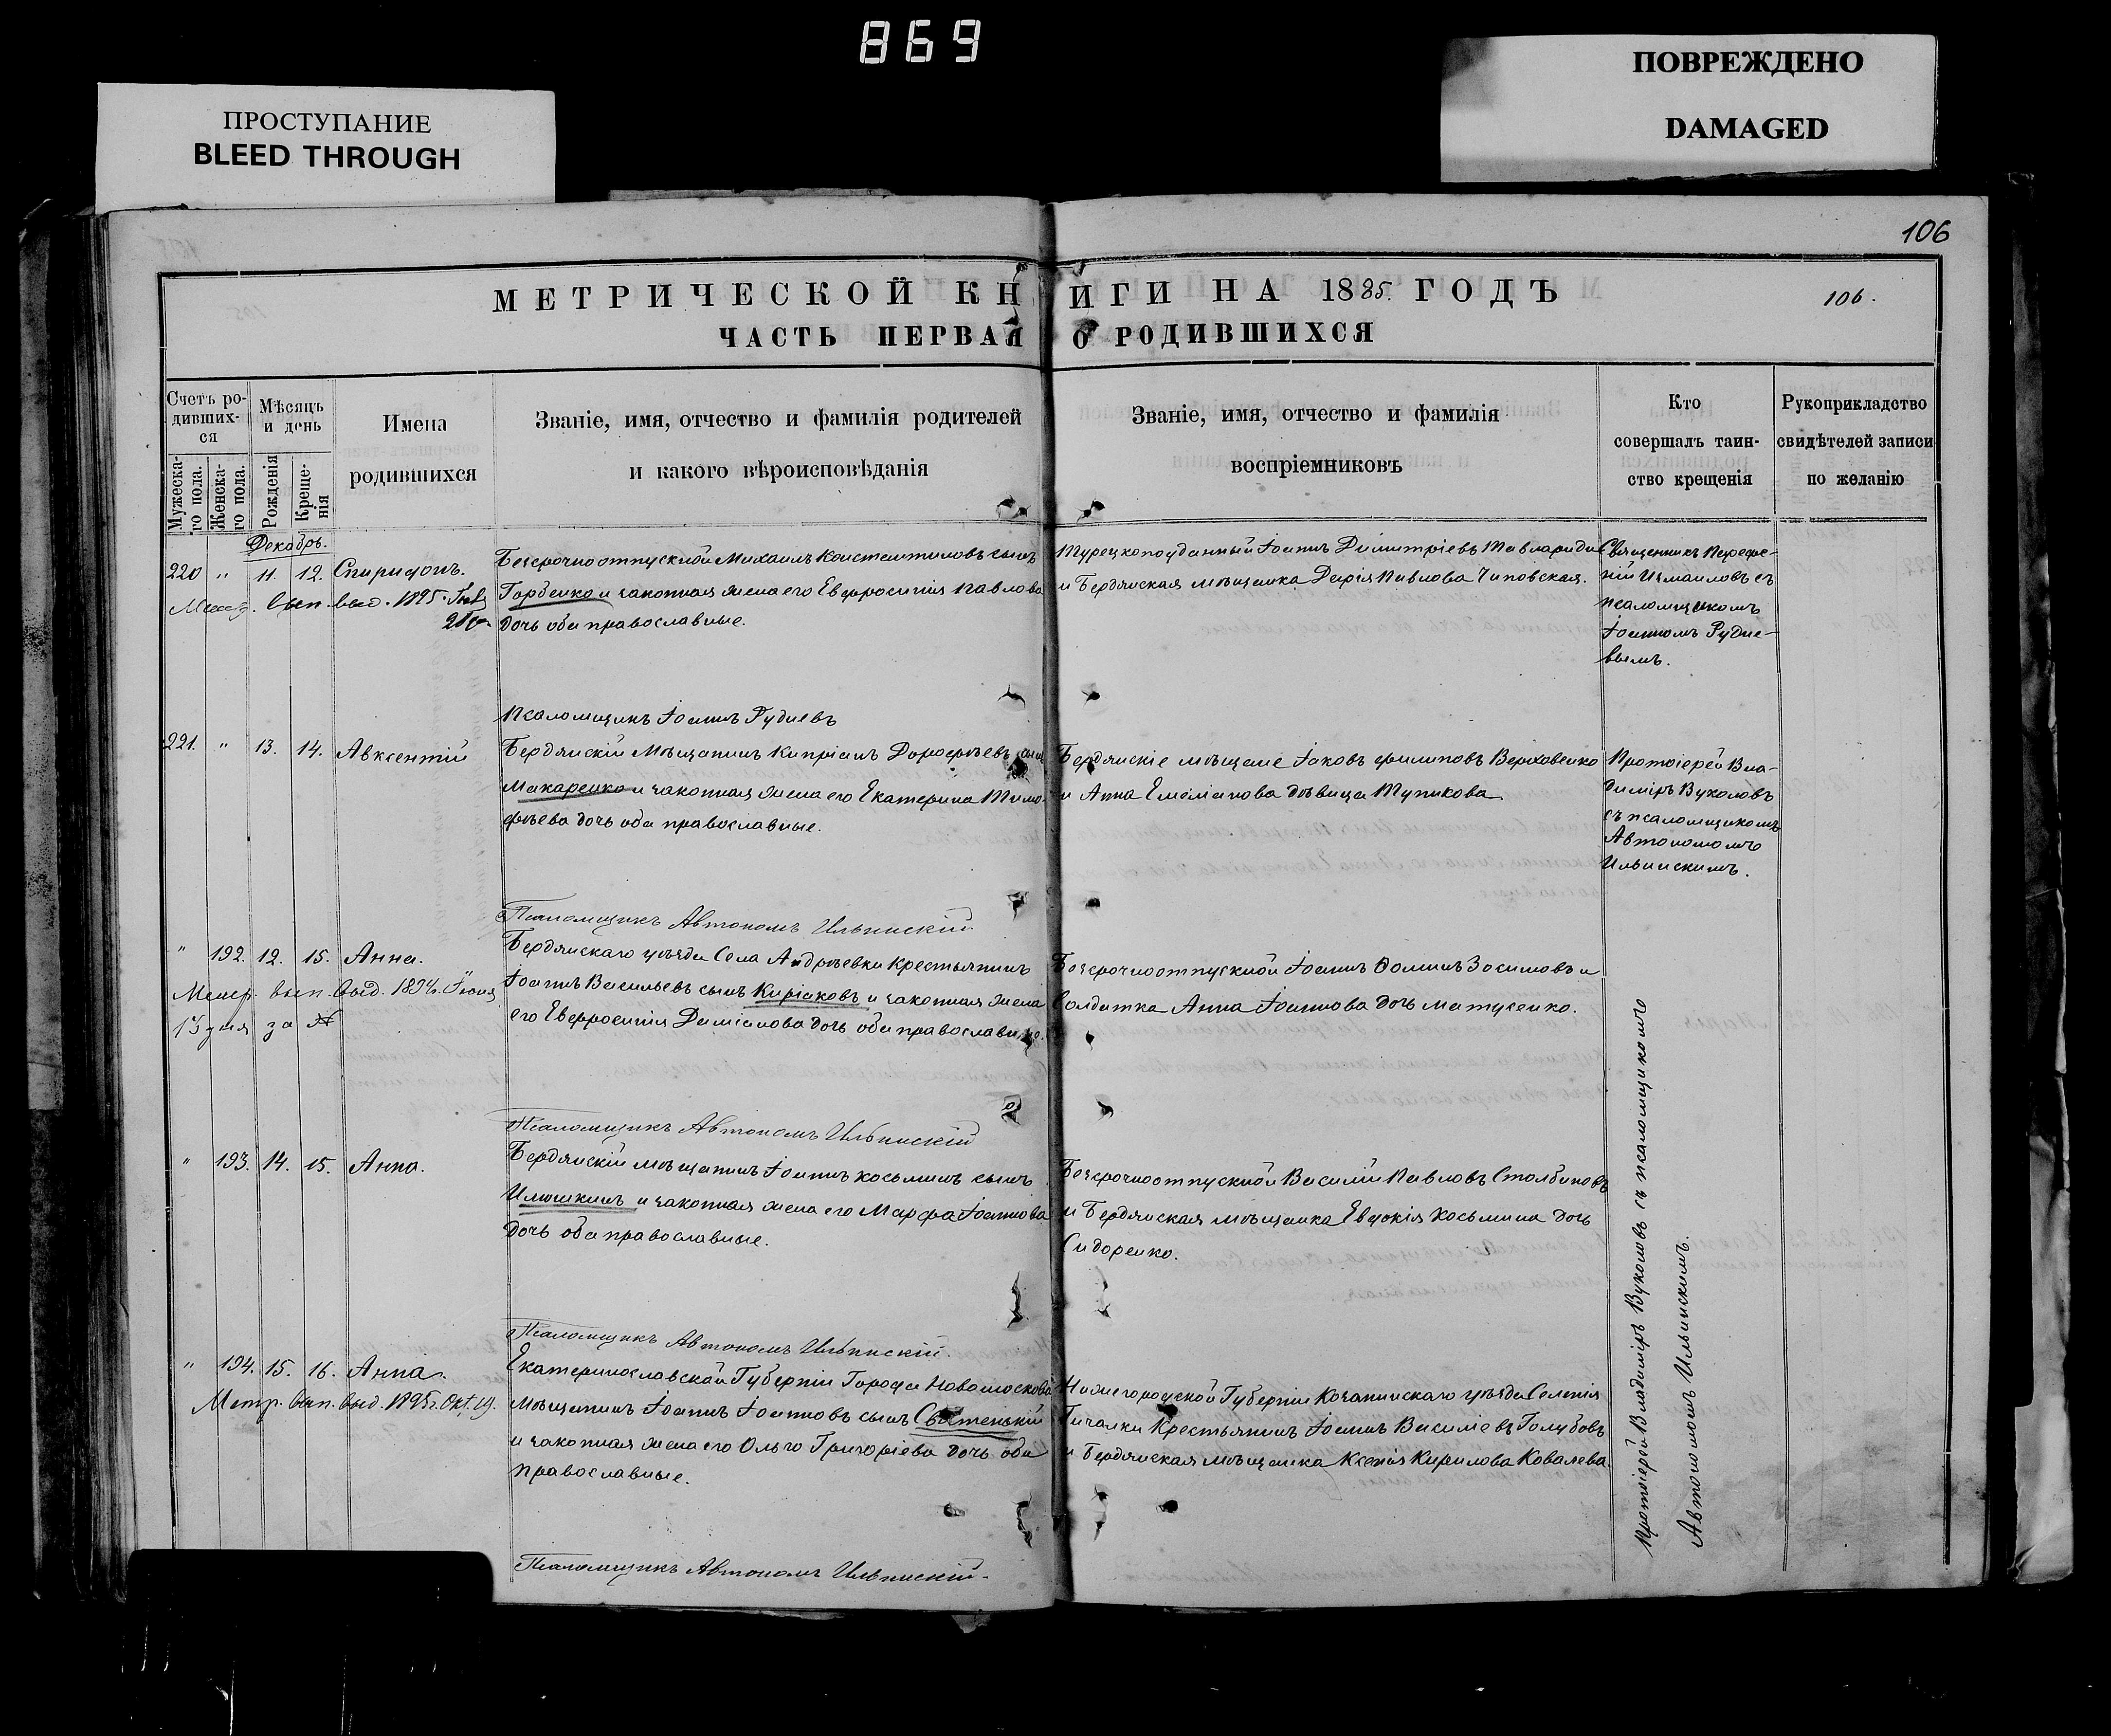 869
ПРОСТУПАНИЕ
BLEED THROUGH
ПОВРЕЖДЕНО
DAMAGED
106
МЕТРИЧЕСКОЙ КНИГИ НА 1885. ГОДЪ
106.
ЧАСТЬ ПЕРВАЯ О РОДИВШИХСЯ
Счетъ ро-
дивших-
ся
Мужеска-
го пола.
Женска-
го пола.
Мѣсяцъ
и день
Рожденія
Креще-
нія
Имена
родившихся
Званіе, имя, отчество и фамилія родителей
и какого вѣроисповѣданія
Званіе, имя, отчество и фамилія
воспріемниковъ
Кто
совершалъ таин-
ство крещенія
Рукоприкладство
свидѣтелей записи
по желанію
Декабрь.
220 " 11. 12. Спиридонъ.
вып. выд. 1895.
Безсрочноотпускной Михаилъ Константиновъ сынъ
Горбенко и законная жена его Евфросинія Павлова
дочь оба православные.
Турецкоподданный Іоаннъ Димитріевъ
и Бердянская мѣщанка Дарія Павлова Чиповская.
Священникъ
Измаиловъ съ
псаломщикомъ
Іоанномъ Рудне-
вымъ.
Псаломщикъ Іоаннъ Рудневъ
221. " 13. 14. Авксентій
Бердянскій Мѣщанинъ Кипріанъ Дороѳеевъ сынъ
Макаренко и законная жена его Екатерина Тимо-
ѳеева дочь оба православные.
Бердянскіе мѣщане Іаковъ Филиповъ Верховенко
и Анна Емеліанова дѣвица Тупикова
Протоіерей Вла-
диміръ Вуколовъ
съ псаломщикомъ
Автономомъ
Ильинскимъ.
Псаломщикъ Автономъ Ильинскій
" 192. 12. 15. Анна.
Метр. вып. выд. 1894. Іюня
13 дня за №
Бердянскаго уѣзда Села Андреевки Крестьянинъ
Іоаннъ Васильевъ сынъ Киріаковъ и законная жена
его Евфросинія Даміанова дочь оба православные.
Безсрочноотпускной Іоаннъ Зосимовъ и
Солдатка Анна Іоаннова дочь Матусенко.
Псаломщикъ Автономъ Ильинскій
" 193. 14. 15. Анна.
Бердянскій мѣщанинъ Іоаннъ Косьминъ сынъ
Илюшкинъ и законная жена его Марѳа Іоаннова
дочь оба православные.
Безсрочноотпускной Василій Павловъ Столбиковъ
и Бердянская мѣщанка Евдокія Косьмина дочь
Сидоренко.
Псаломщикъ Автономъ Ильинскій.
" 194. 15. 16. Анна.
Метр. вып. выд. 1895г. Окт. 19.
Екатеринославской Губерніи Города Новомосковска
Мѣщанинъ Іоаннъ Іоанновъ сынъ
и законная жена его Ольга Григоріева дочь оба
православные.
Нижегородской Губерніи уѣзда Селенія
Гичалки Крестьянинъ Іоаннъ Василіевъ Голубовъ
и Бердянская мѣщанка Ксенія Кирилова Ковалева.
Протоіерей Владиміръ Вуколовъ съ псаломщикомъ
Автономомъ Ильинскимъ.
Псаломщикъ Автономъ Ильинскій.